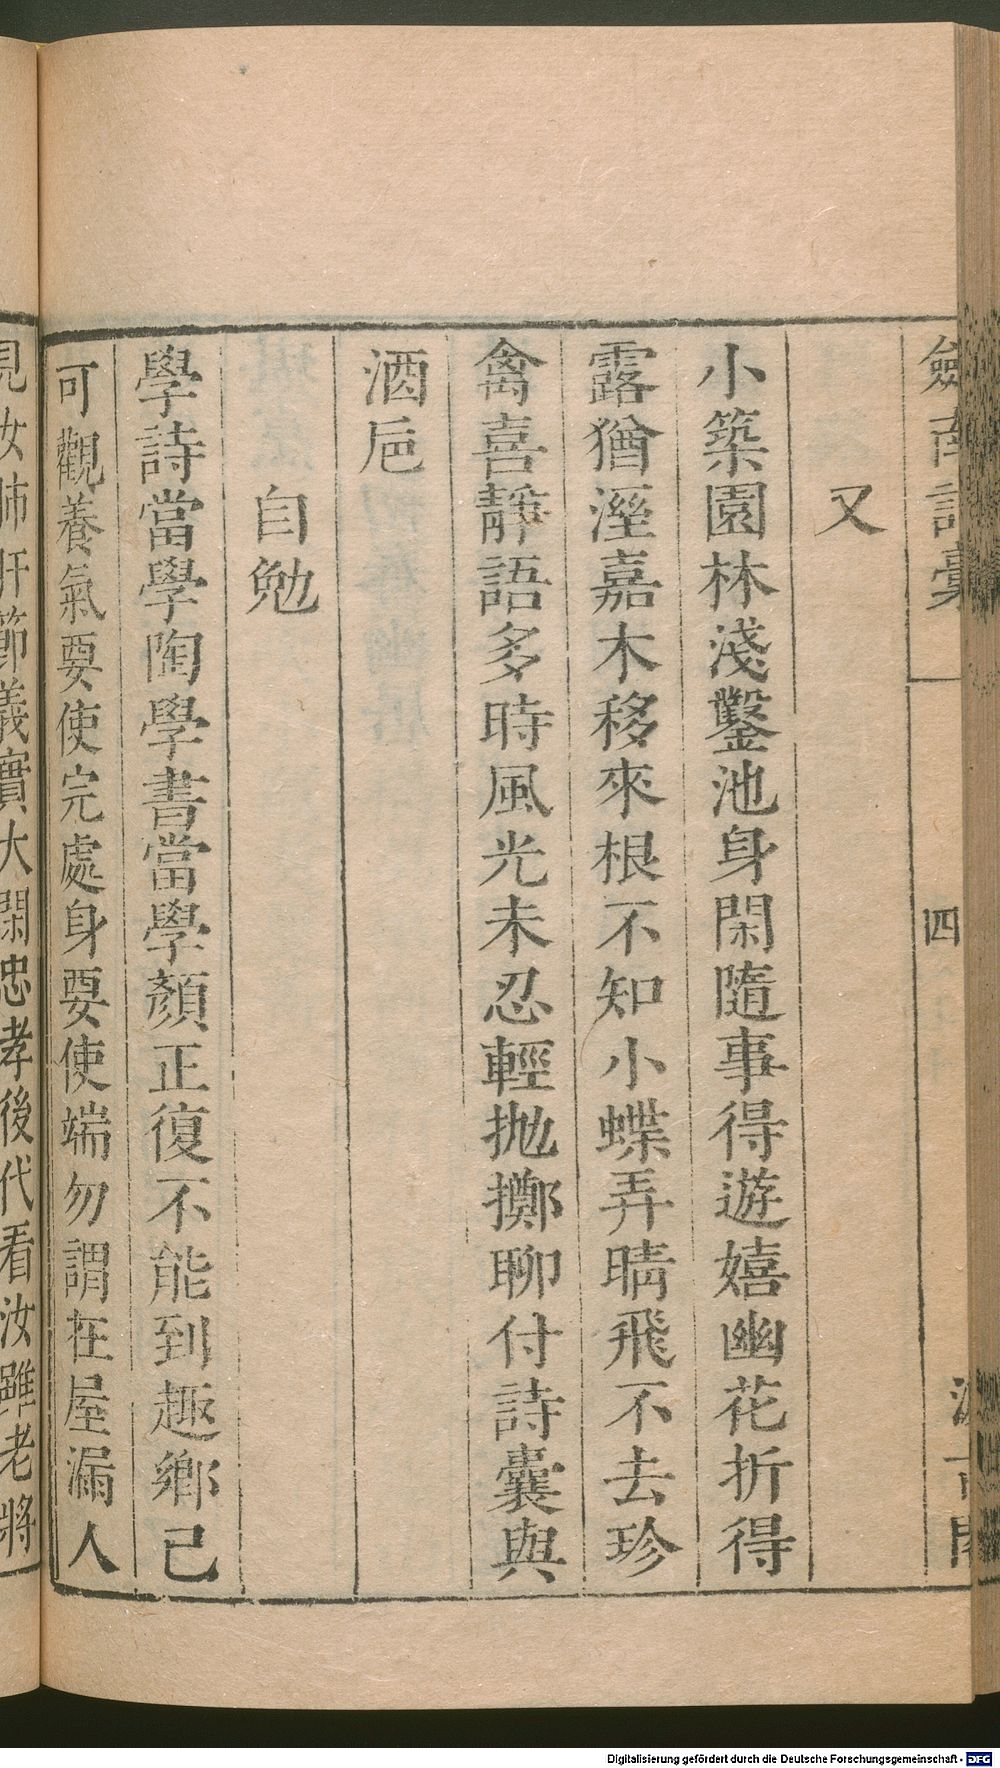 劍南詩稾
四
又
小築園林淺鑿池身閑隨事得遊嬉幽花折得
露猶溼嘉木移來根不知小蝶弄晴飛不去珍
禽喜靜語多時風光未忍輕抛擲聊付詩囊與
酒巵
自勉
學詩當學陶學書當學顏正復不能到趣鄉已
可觀養氣要使完處身要使端勿謂在屋漏人
見汝肺肝節義實大閑忠孝後代看汝雖老將
Digitalisierung gefördert durch die Deutsche Forschungsgemeinschaft - DFG